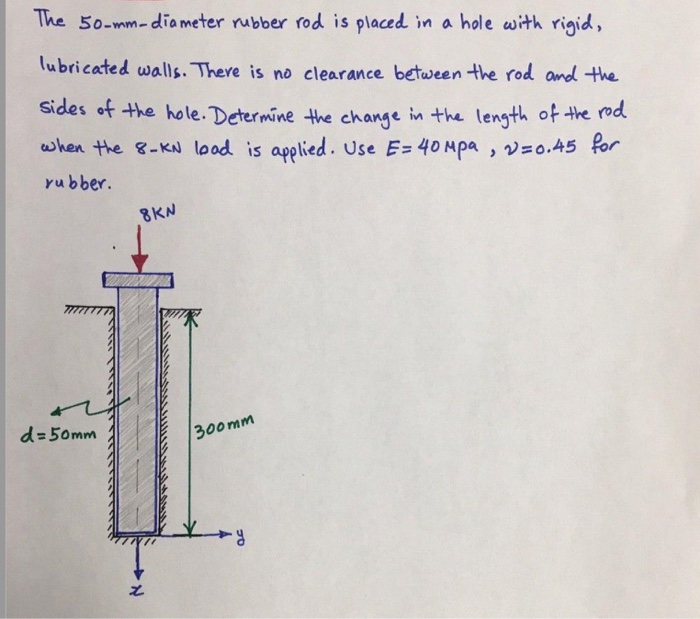 The 50-mm-diameter rubber rod is placed in a hole with rigid,
lubricated walls. There is no clearance between the rod and the
sides of the hole. Determine the change in the length of the rod
when the 8-KN load is applied. Use E= 40 Mpa , ν=0.45 for
rubber.
8KN
d=50mm
300mm
y
x